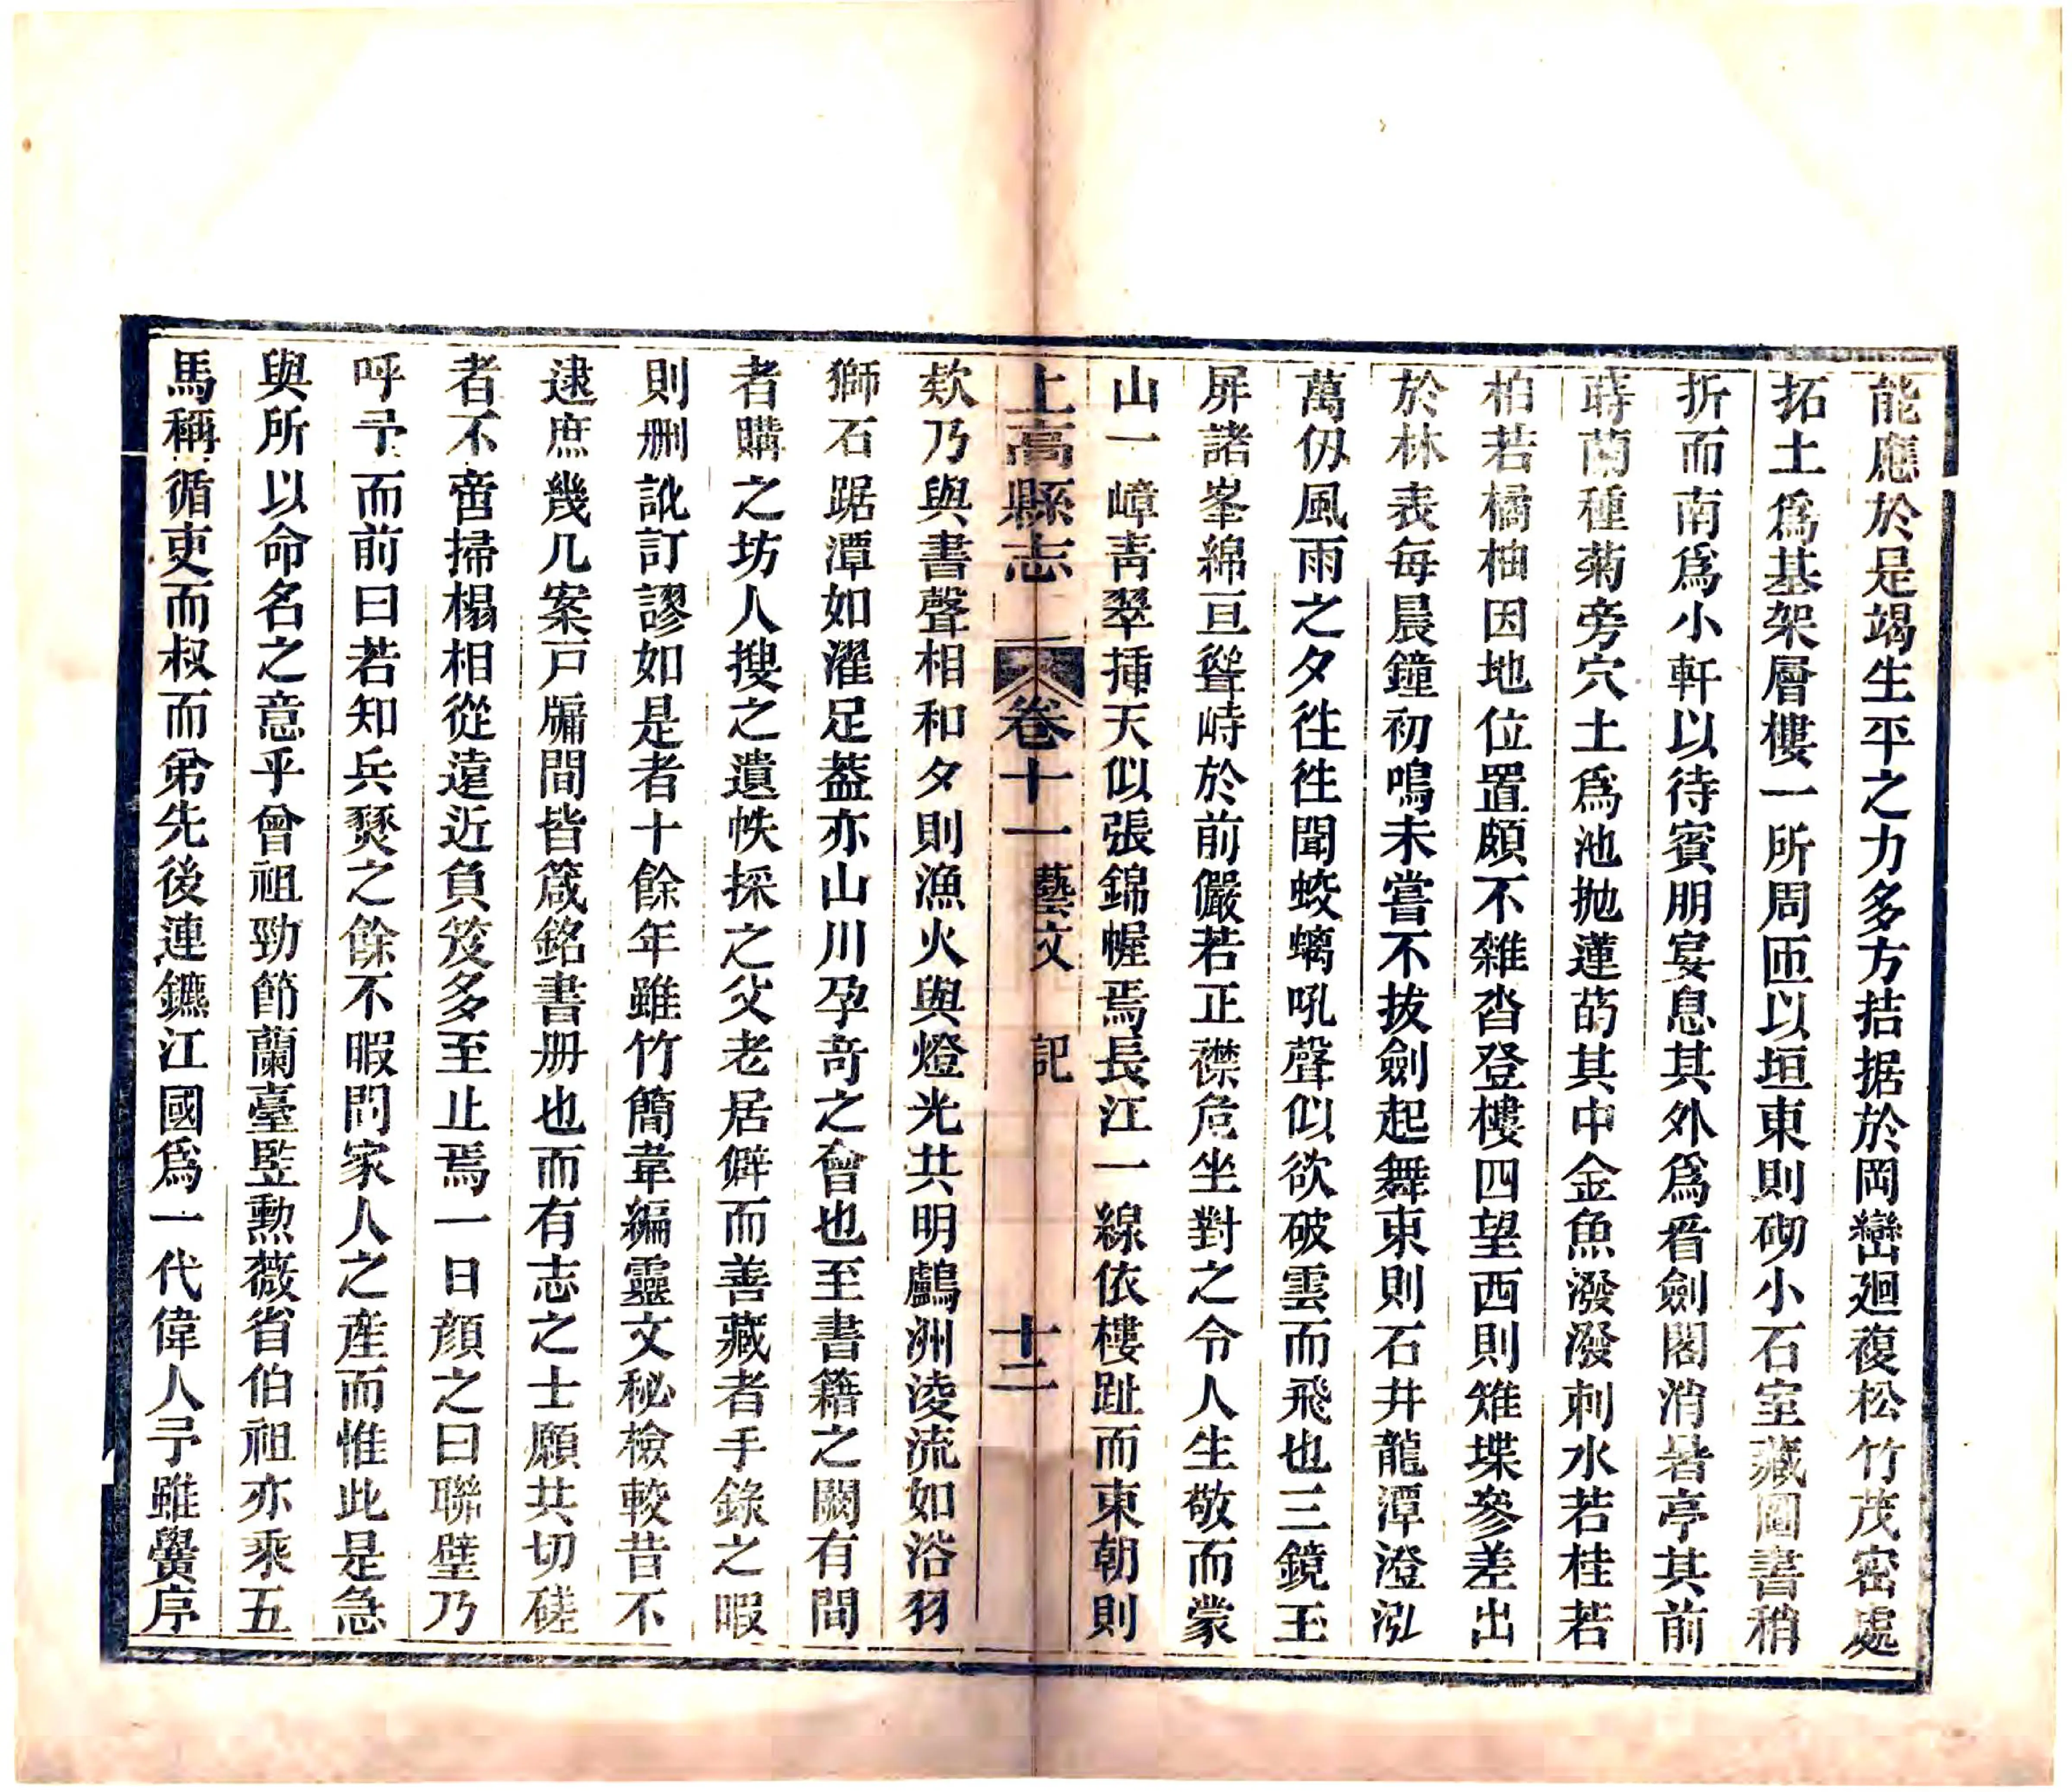 能應於是竭生平之力多方拮据於岡巒廻復松竹茂密處
拓土爲基架層樓一所周匝以垣東則砌小石室藏圖書稍
折而南爲小軒以待賓朋宴息其外爲看劍閣消暑亭其前
蒔蘭種菊旁穴土爲池抛蓮菂其中金魚潑潑刺水若桂若
柏若橘柚因地位置頗不雜沓登樓四望西則雉堞參差出
於林表每晨鐘初鳴未嘗不拔劍起舞東則石井龍潭澄泓
萬仭風雨之夕徃徃聞蛟螭吼聲似欲破雲而飛也三鏡玉
屏諸峯綿亘聳峙於前儼若正襟危坐對之令人生敬而蒙
山一嶂青翠揷天似張錦幄焉長江一線依樓趾而東朝則
上高縣志 卷十一 藝文 記 十二
欸乃與書聲相和夕則漁火與燈光共明鸕洲淩流如浴羽
獅石踞潭如濯足葢亦山川孕奇之會也至書籍之闕有間
者購之坊人搜之遺帙採之父老居僻而善藏者手錄之暇
則删訛訂謬如是者十餘年雖竹簡韋編靈文秘檢較昔不
逮庶幾几案戸牖間皆箴銘書册也而有志之士願共切磋
者不啻掃榻相從遠近負笈多至止焉一日顔之曰聯璧乃
呼予而前曰若知兵燹之餘不暇問家人之產而惟此是急
與所以命名之意乎曾祖勁節蘭臺監勲薇省伯祖亦乘五
馬稱循吏而叔而弟先後連鑣江國爲一代偉人予雖黌序